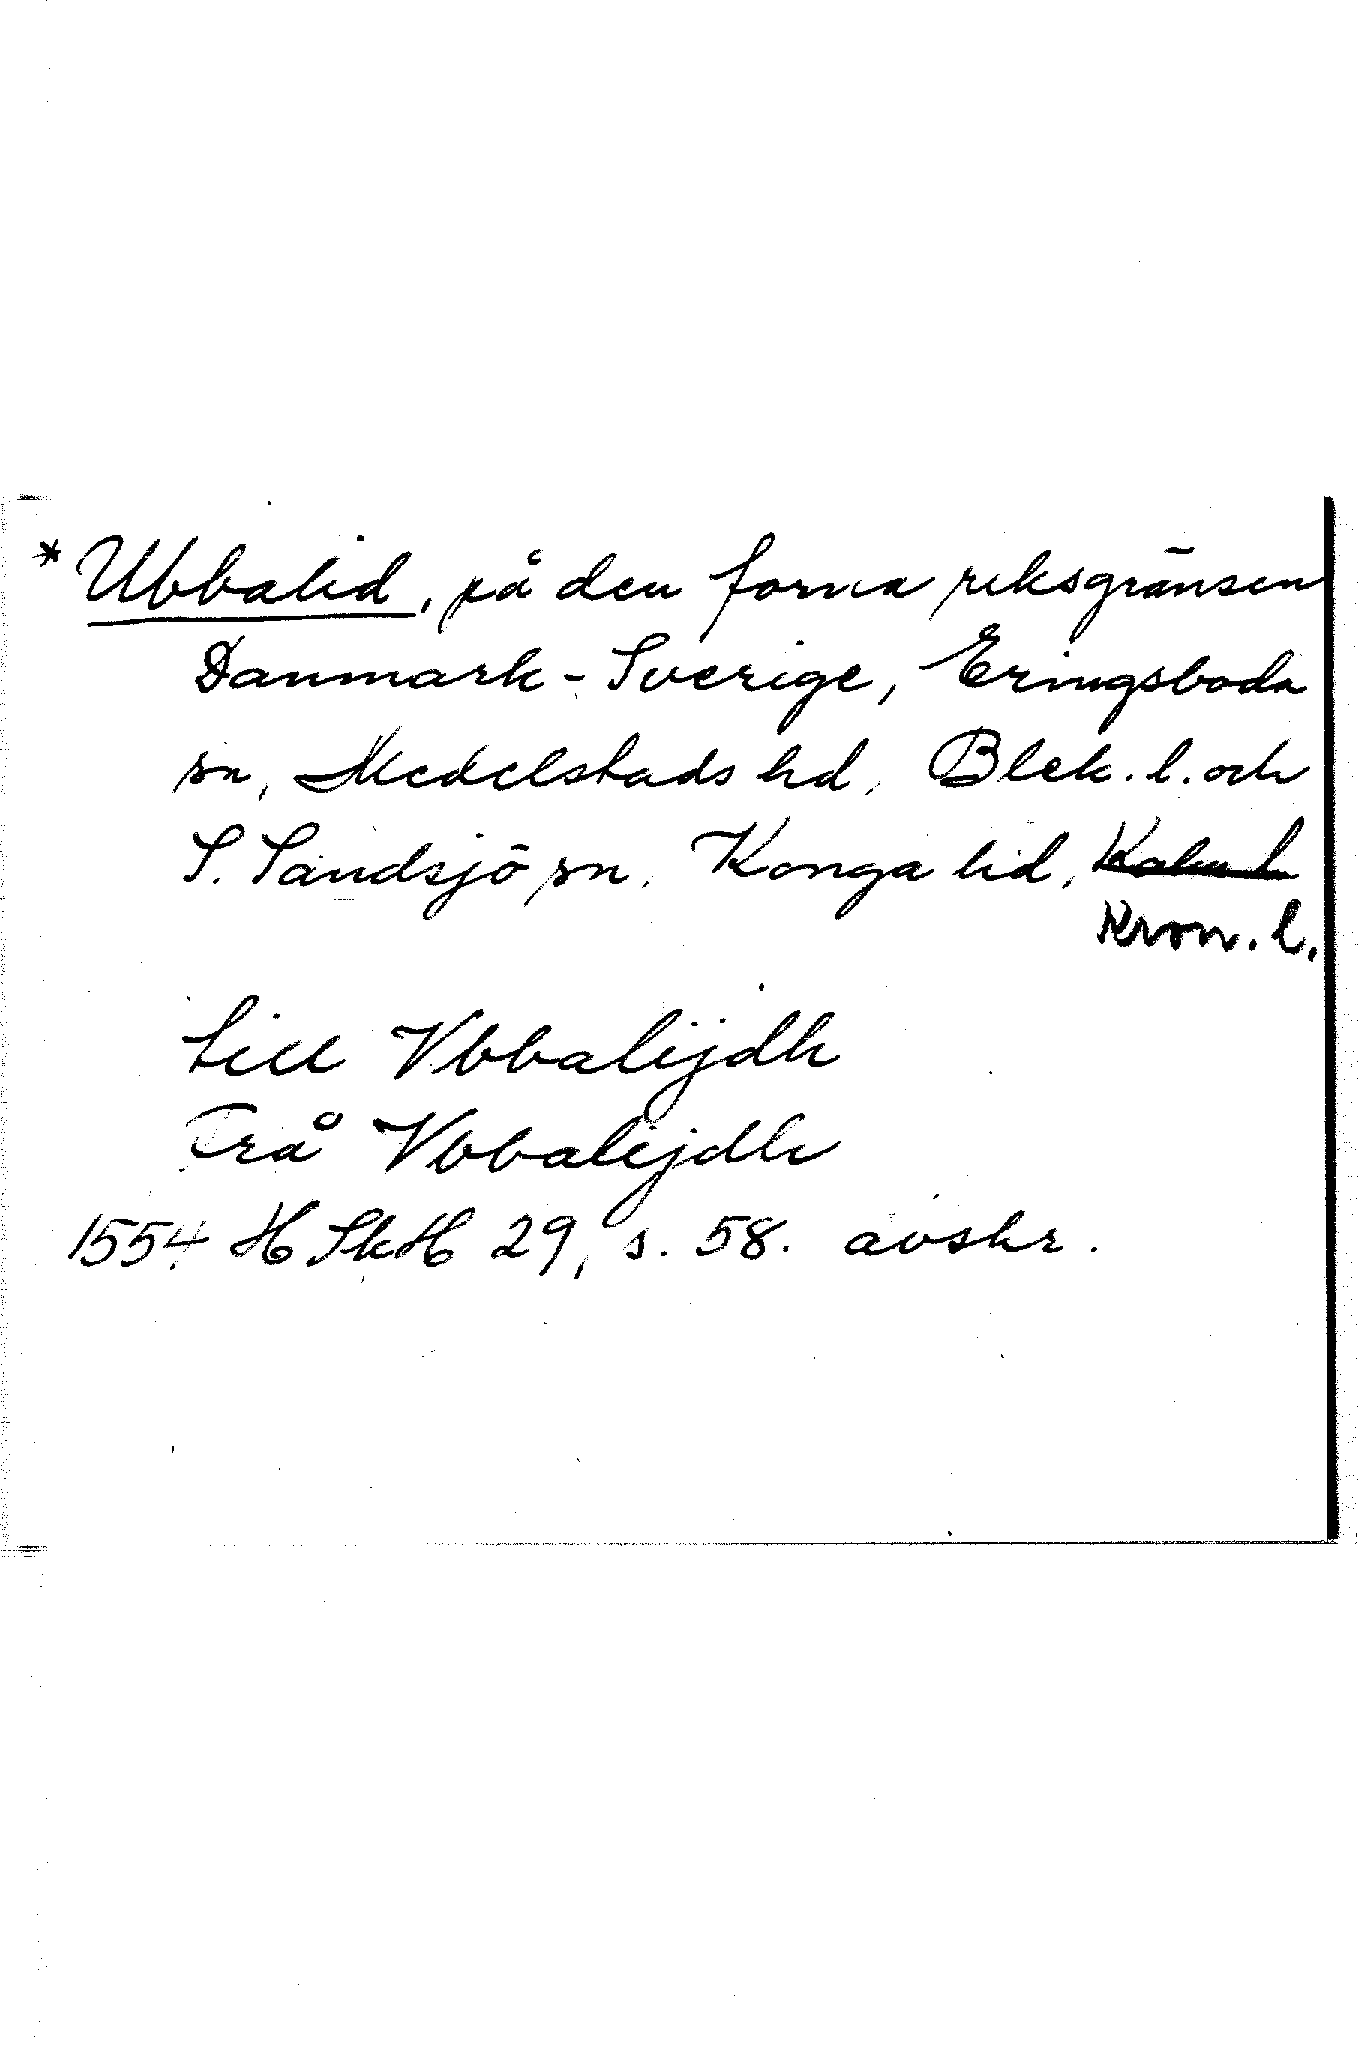 * Ubbalid, på den forna riksgränsen
Danmark - Sverige, Eringsboda
sn, Medelstads hd, Blek. l. och
S. Sandsjö sn, Konga hd, Kalm. l.
Kron. l.
till Vbbalijdh
Frå Vbbalijdh
1554 H SkH 29, s. 58. avskr.